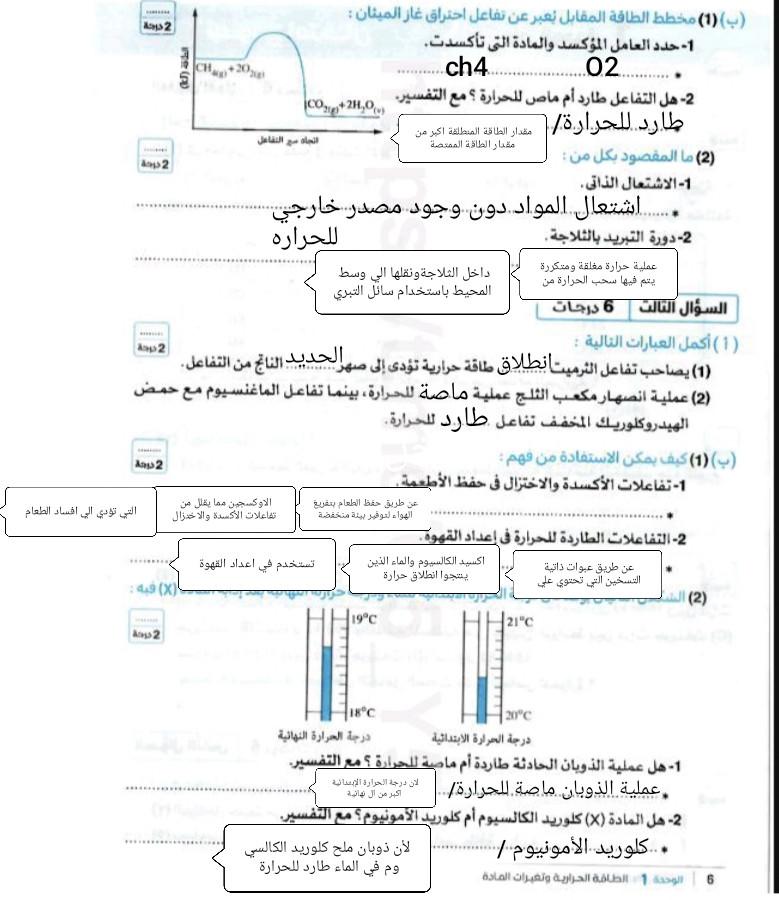 (ب) (1) مخطط الطاقة المقابل يُعبر عن تفاعل احتراق غاز الميثان :
2 درجة
1- حدد العامل المؤكسد والمادة التى تأكسدت.
O2 ch4
2- هل التفاعل طارد أم ماص للحرارة ؟ مع التفسير.
طارد للحرارة/
مقدار الطاقة المنطلقة اكبر من
مقدار الطاقة الممتصة
الطاقة (kJ)
CH4(g)+2O2(g)
CO2(g)+2H2O(v)
اتجاه سير التفاعل
(2) ما المقصود بكل من :
2 درجة
1- الاشتعال الذاتى.
اشتعال المواد دون وجود مصدر خارجي
للحراره
2- دورة التبريد بالثلاجة.
عملية حرارة مغلقة ومتكررة
يتم فيها سحب الحرارة من
داخل الثلاجةونقلها الي وسط
المحيط باستخدام سائل التبري
السؤال الثالث 6 درجات
(أ) أكمل العبارات التالية :
2 درجة
(1) يصاحب تفاعل الثرميت انطلاق طاقة حرارية تؤدى إلى صهر الحديد الناتج من التفاعل.
(2) عملية انصهار مكعب الثلج عملية ماصة للحرارة، بينما تفاعل الماغنسيوم مع حمض
الهيدروكلوريك المخفف تفاعل طارد للحرارة.
(ب) (1) كيف يمكن الاستفادة من فهم :
2 درجة
1- تفاعلات الأكسدة والاختزال فى حفظ الأطعمة.
عن طريق حفظ الطعام بتفريغ
الهواء لتوفير بيئة منخفضة
الاوكسجين مما يقلل من
تفاعلات الأكسدة والاختزال
التي تؤدي الي افساد الطعام
2- التفاعلات الطاردة للحرارة فى إعداد القهوة.
عن طريق عبوات ذاتية
التسخين التي تحتوي علي
اكسيد الكالسيوم والماء الذين
ينتجوا انطلاق حرارة
تستخدم في اعداد القهوة
(2)
(X) فيه :
2 درجة
21°C
20°C
درجة الحرارة الابتدائية
19°C
18°C
درجة الحرارة النهائية
1- هل عملية الذوبان الحادثة طاردة أم ماصة للحرارة ؟ مع التفسير.
عملية الذوبان ماصة للحرارة/
لان درجة الحرارة الإبتدائية
اكبر من ال نهائية
2- هل المادة (X) كلوريد الكالسيوم أم كلوريد الأمونيوم؟ مع التفسير.
كلوريد الأمونيوم /
لأن ذوبان ملح كلوريد الكالسي
وم في الماء طارد للحرارة
6 الوحدة 1 الطاقة الحرارية وتغيرات المادة